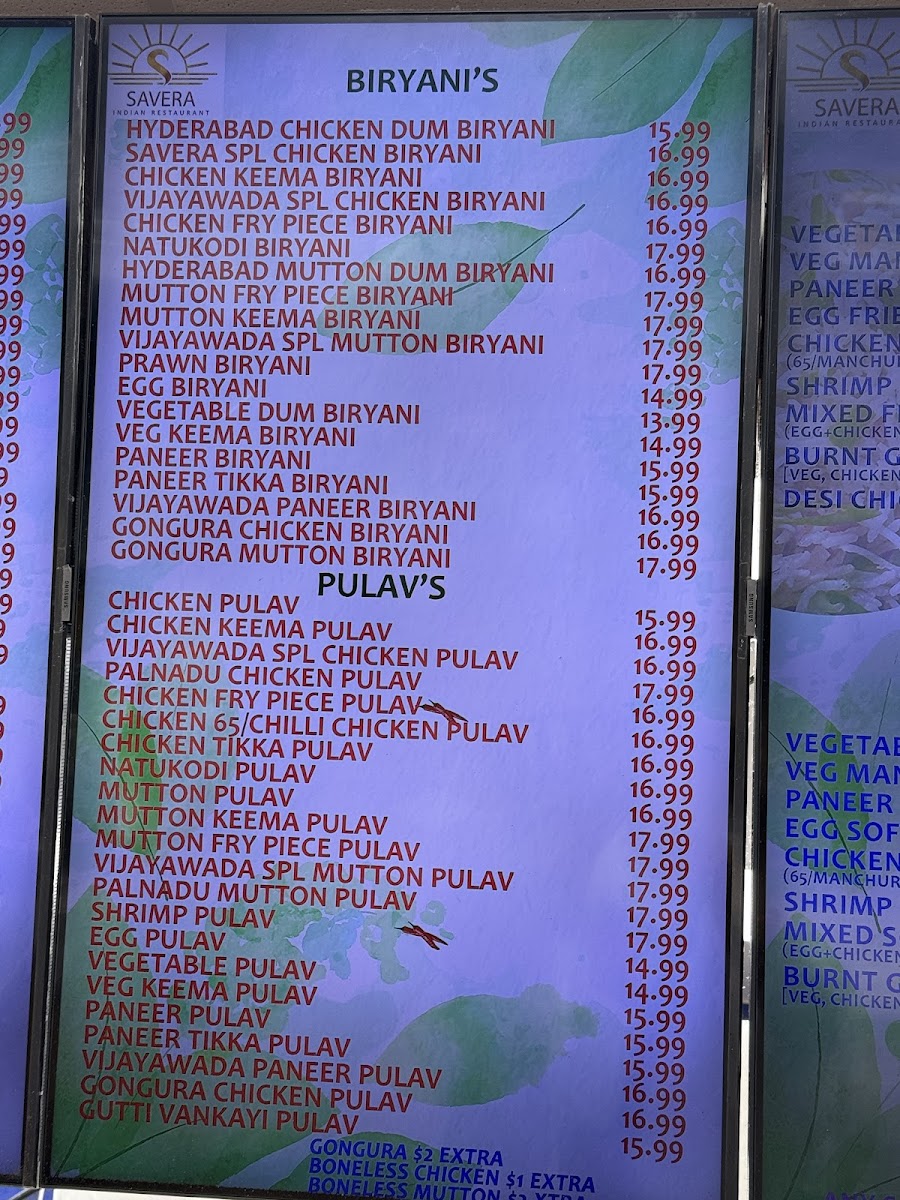 SAVERA
INDIAN RESTAURANT
BIRYANI'S
HYDERABAD CHICKEN DUM BIRYANI 15.99
SAVERA SPL CHICKEN BIRYANI 16.99
CHICKEN KEEMA BIRYANI 16.99
VIJAYAWADA SPL CHICKEN BIRYANI 16.99
CHICKEN FRY PIECE BIRYANI 16.99
NATUKODI BIRYANI 17.99
HYDERABAD MUTTON DUM BIRYANI 16.99
MUTTON FRY PIECE BIRYANI 17.99
MUTTON KEEMA BIRYANI 17.99
VIJAYAWADA SPL MUTTON BIRYANI 17.99
PRAWN BIRYANI 17.99
EGG BIRYANI 14.99
VEGETABLE DUM BIRYANI 13.99
VEG KEEMA BIRYANI 14.99
PANEER BIRYANI 15.99
PANEER TIKKA BIRYANI 15.99
VIJAYAWADA PANEER BIRYANI 16.99
GONGURA CHICKEN BIRYANI 16.99
GONGURA MUTTON BIRYANI 17.99
PULAV'S
CHICKEN PULAV 15.99
CHICKEN KEEMA PULAV 16.99
VIJAYAWADA SPL CHICKEN PULAV 16.99
PALNADU CHICKEN PULAV 17.99
CHICKEN FRY PIECE PULAV 16.99
CHICKEN 65/CHILLI CHICKEN PULAV 16.99
CHICKEN TIKKA PULAV 16.99
NATUKODI PULAV 16.99
MUTTON PULAV 16.99
MUTTON KEEMA PULAV 17.99
MUTTON FRY PIECE PULAV 17.99
VIJAYAWADA SPL MUTTON PULAV 17.99
PALNADU MUTTON PULAV 17.99
SHRIMP PULAV 17.99
EGG PULAV 14.99
VEGETABLE PULAV 14.99
VEG KEEMA PULAV 15.99
PANEER PULAV 15.99
PANEER TIKKA PULAV 15.99
VIJAYAWADA PANEER PULAV 16.99
GONGURA CHICKEN PULAV 16.99
GUTTI VANKAYI PULAV 15.99
GONGURA $2 EXTRA
BONELESS CHICKEN $1 EXTRA
BONELESS MUTTON
SAMSUNG
SAVERA
INDIAN
VEGETAB
VEG MAN
PANEER
EGG FRIE
CHICKEN
(65/MANCHUR
SHRIMP
MIXED F
(EGG+CHICKEN
BURNT G
[VEG, CHICKEN
DESI CHI
VEGETAB
VEG MAN
PANEER
EGG SOF
CHICKEN
(65/MANCHUR
SHRIMP
MIXED S
(EGG+CHICKEN
BURNT G
[VEG, CHICKEN